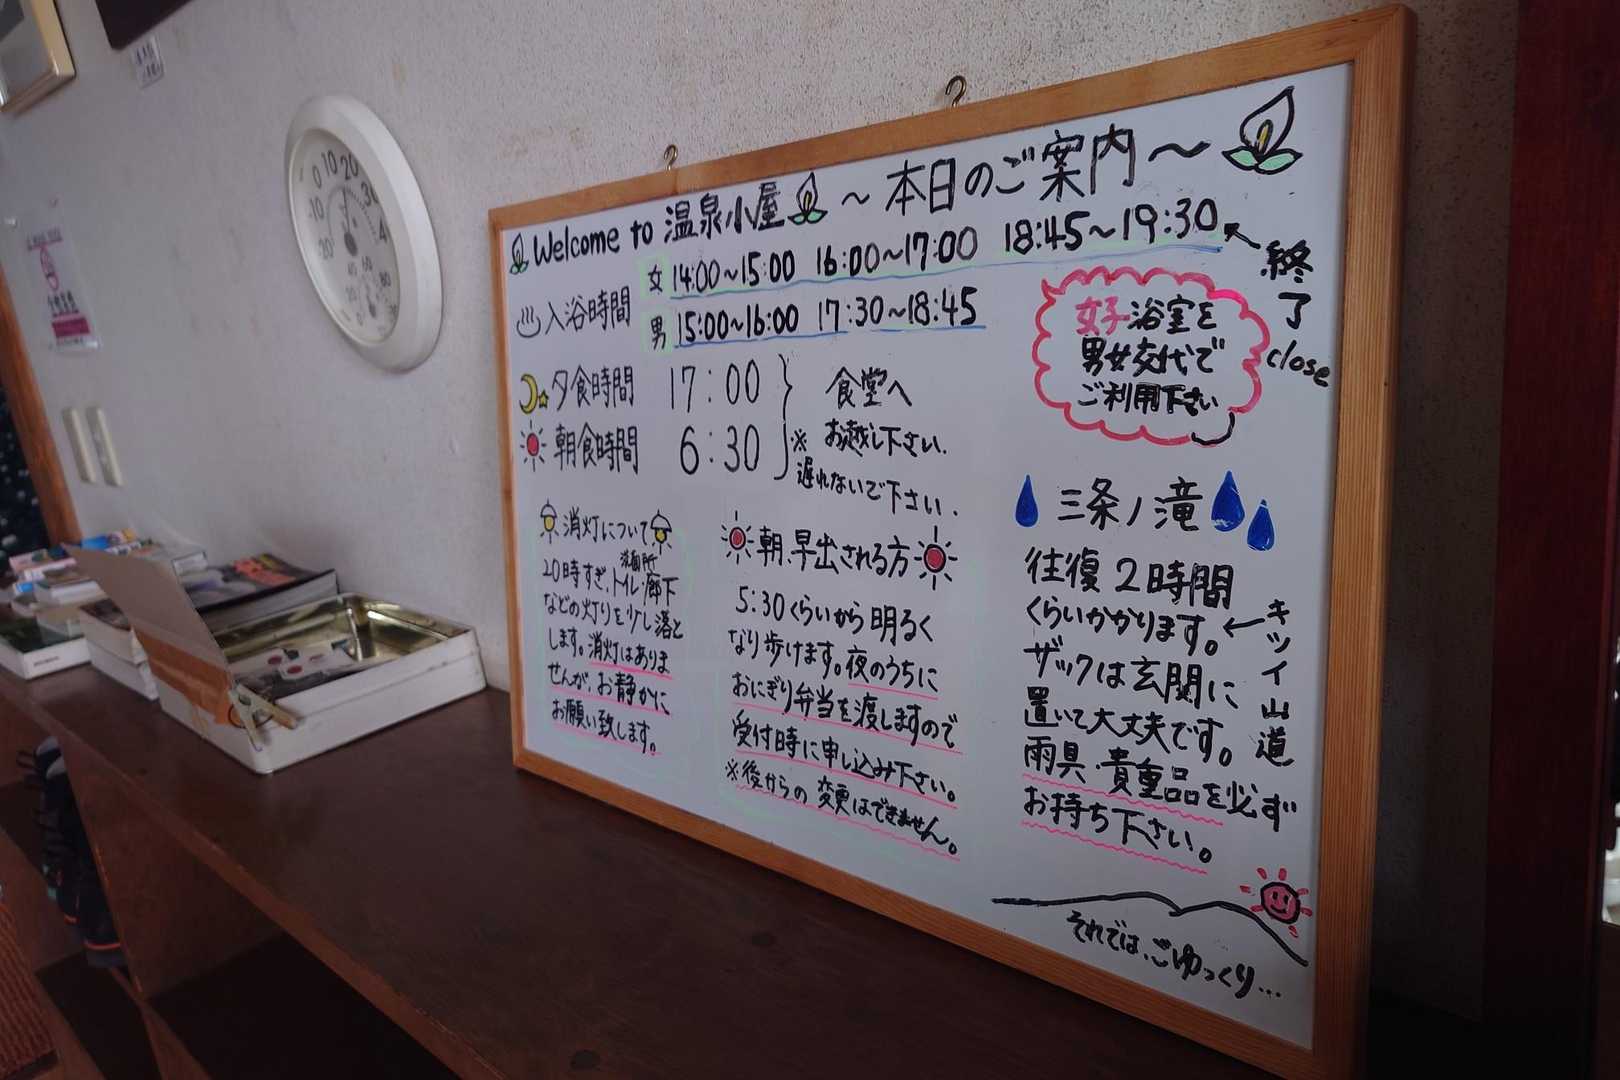 Welcome to 温泉小屋 ～本日のご案内～
入浴時間
女 14:00～15:00 16:00～17:00 18:45～19:30
男 15:00～16:00 17:30～18:45
終了
close
女子浴室を
男女交代で
ご利用下さい
夕食時間 17:00
朝食時間 6:30
食堂へ
お越し下さい.
※遅れないで下さい.
消灯について
20時すぎ、トイレ・廊下
洗面所
などの灯りを少し落と
します。消灯はありま
せんが、お静かに
お願い致します。
朝、早出される方
5:30くらいから明るく
なり歩けます。夜のうちに
おにぎり弁当を渡しますので
受付時に申し込み下さい。
※後からの変更はできません。
三条ノ滝
往復2時間
くらいかかります。
キツイ山道
ザックは玄関に
置いて大丈夫です。
雨具 貴重品を必ず
お持ち下さい。
それでは、ごゆっくり…
0 10 20 30 4
-10
-20
20 40 60 80